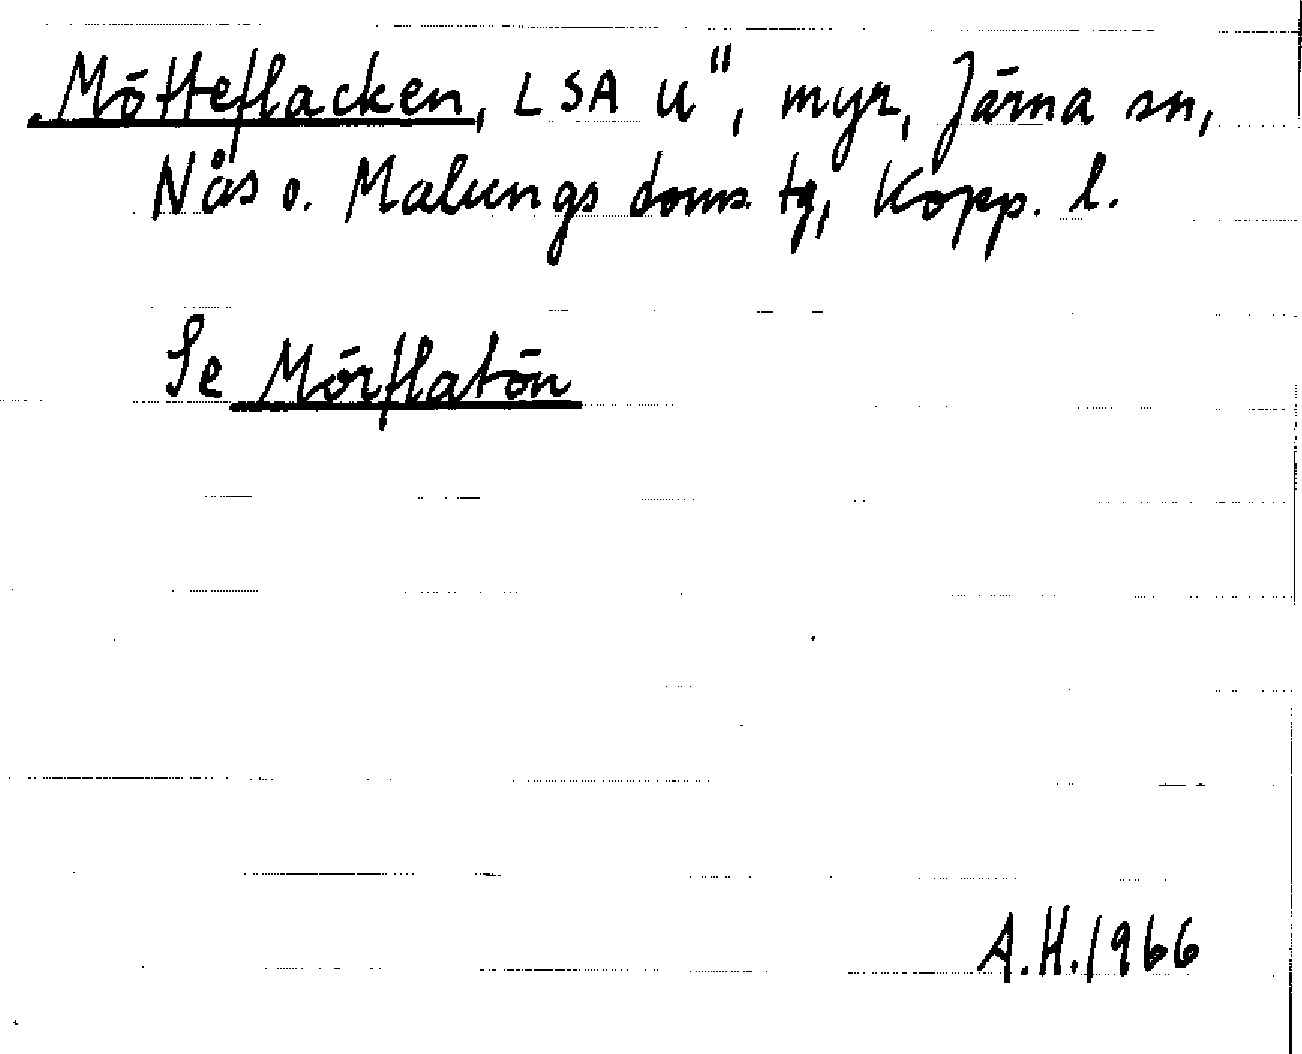 Mötteflacken, LSA U", myr, Järna sn,
Nås o. Malungs doms. tg, Kopp. l.
Se Mörflatön
A.H.1966